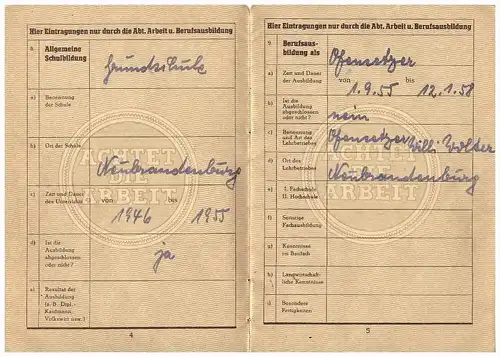 Hier Eintragungen nur durch die Abt. Arbeit u. Berufsausbildung
8. Allgemeine Schulbildung
Grundschule
a) Benennung der Schule
b) Ort der Schule
Neubrandenburg
c) Zeit und Dauer des Unterrichts
von bis
1946 1955
d) Ist die Ausbildung abgeschlossen oder nicht?
ja
e) Resultat der Ausbildung (z. B. Dipl.-Kaufmann, Volkswirt usw.)
ACHTET DIE ARBEIT
4
Hier Eintragungen nur durch die Abt. Arbeit u. Berufsausbildung
9. Berufsausbildung als
Ofensetzer
a) Zeit und Dauer der Ausbildung
von bis
1.9.55 12.1.58
b) Ist die Ausbildung abgeschlossen oder nicht?
nein
c) Benennung und Art des Lehrbetriebes
Ofensetzer Willi Wolter
d) Ort des Lehrbetriebes
Neubrandenburg
e) I. Fachschule
II. Hochschule
f) Sonstige Fachausbildung
g) Kenntnisse im Baufach
h) Landwirtschaftliche Kenntnisse
i) Besondere Fertigkeiten
ACHTET DIE ARBEIT
5